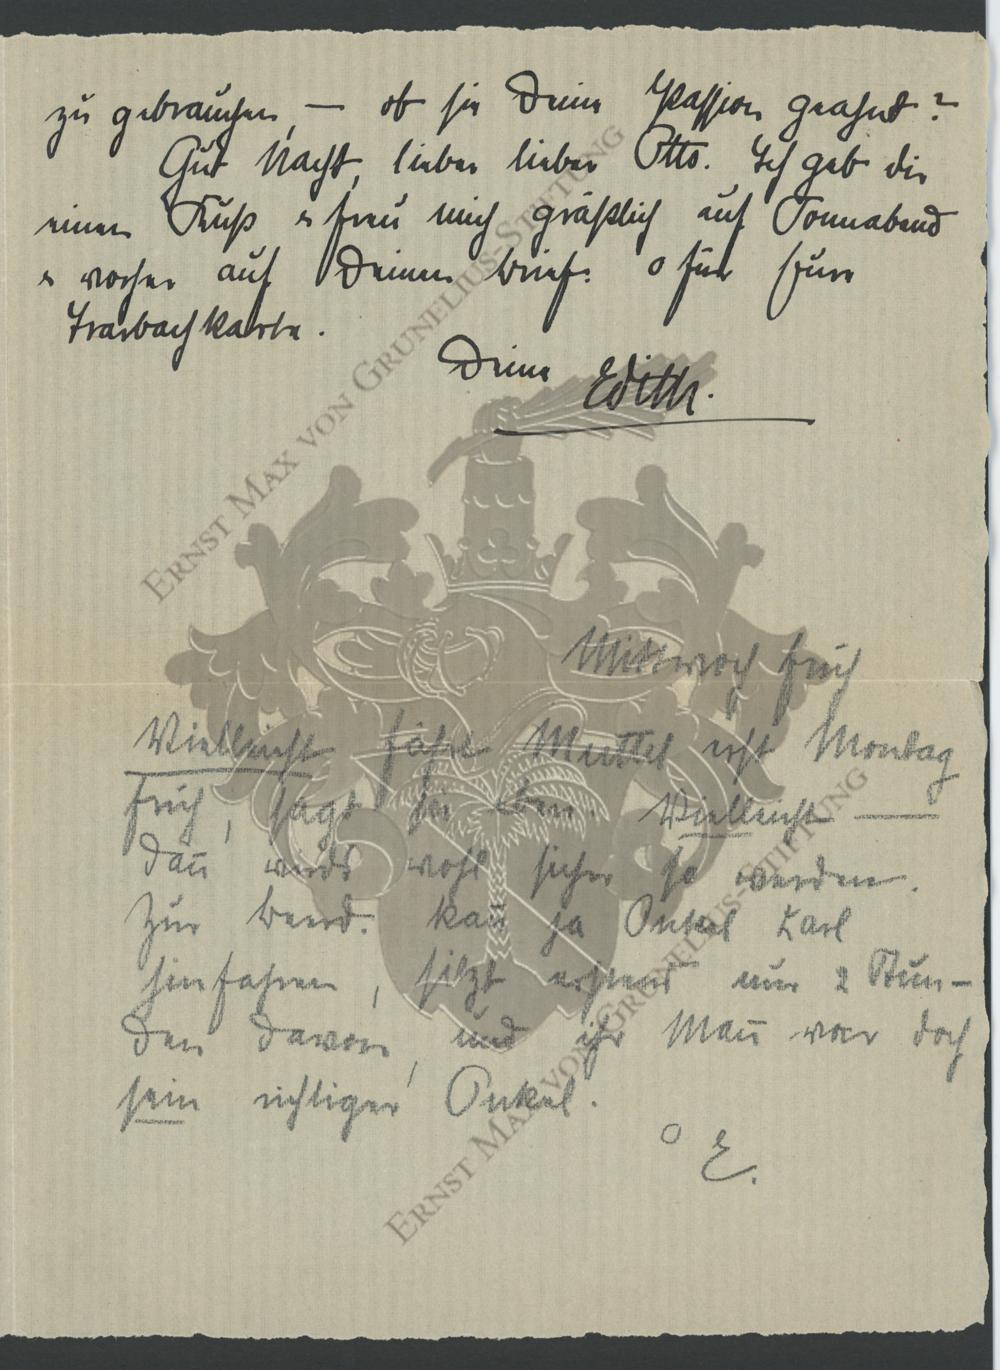 zu gebrauchen, — ob sie Deine Passion geahnt?
Gut Nacht, lieber lieber Otto. Ich geb dir
einen Kuß & freu mich gräßlich auf Sonnabend
& vorher auf Deinen Brief. o für
Trarbachkarte.
Deine Edith.
Mittwoch früh
Vielleicht fährt Muttel erst Montag
früh, sagt sie eben. Vielleicht —
dañ wirds wohl sicher so werden.
Zur Beerd. kañ ja Onkel Karl
hinfahren, sitzt nur 2 Stun-
den davon, und ihr Mañ war doch
sein richtiger Onkel.
o E.
ERNST MAX VON GRUNELIUS-STIFTUNG
ERNST MAX VON GRUNELIUS-STIFTUNG